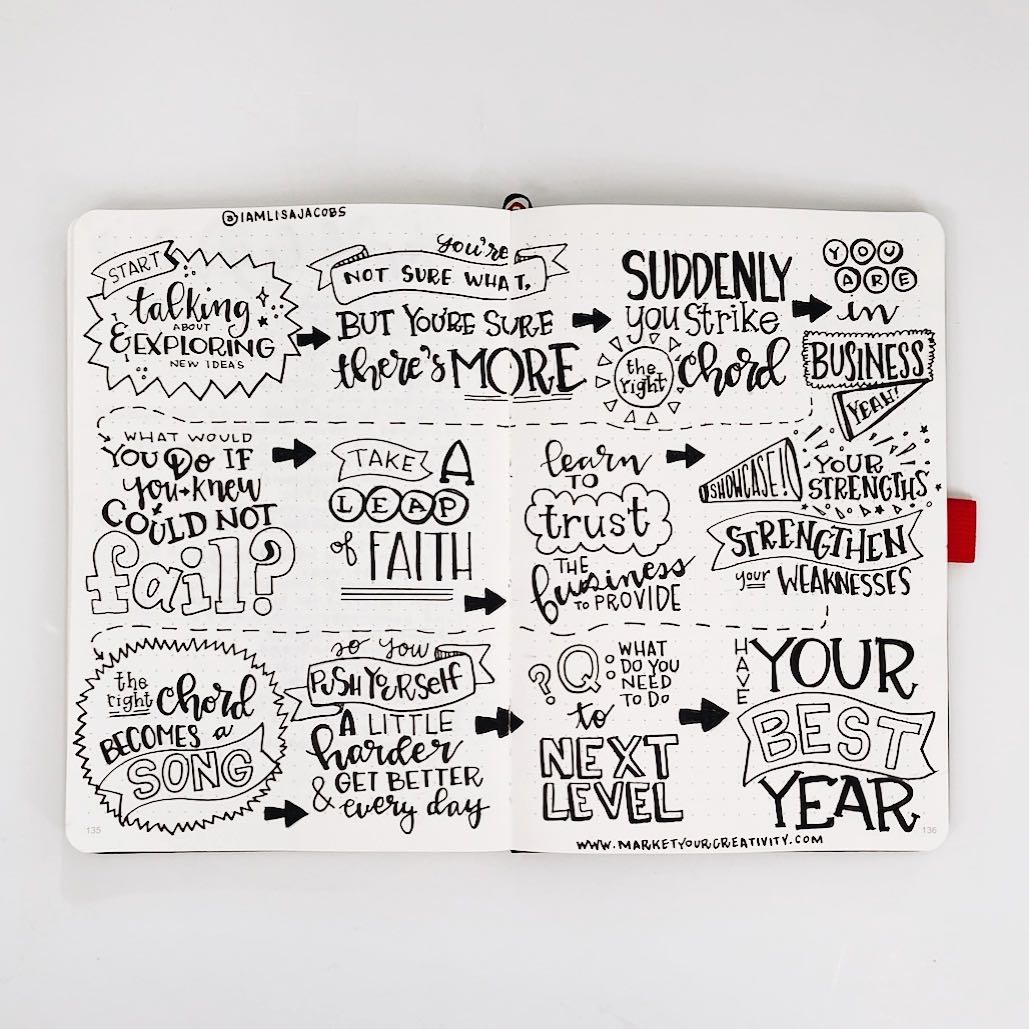 @IAMLISAJACOBS
START
talking
ABOUT
& EXPLORING
NEW IDEAS
you're
NOT SURE WHAT,
BUT YOU'RE SURE
there's MORE
SUDDENLY
you strike
the right chord
YOU
ARE
in
BUSINESS
YEAH!
WHAT WOULD
YOU DO IF
you knew
COULD NOT
fail?
TAKE A
LEAP
of FAITH
learn
TO
trust
THE
business
TO PROVIDE
SHOWCASE!
YOUR
STRENGTHS
STRENGTHEN
your WEAKNESSES
the
right chord
BECOMES a
SONG
so you
PUSH YOURSELF
A LITTLE
harder
& GET BETTER
every day
? Q:
WHAT
DO YOU
NEED
TO DO
to
NEXT
LEVEL
HAVE
YOUR
BEST
YEAR
135
136
WWW.MARKETYOURCREATIVITY.COM